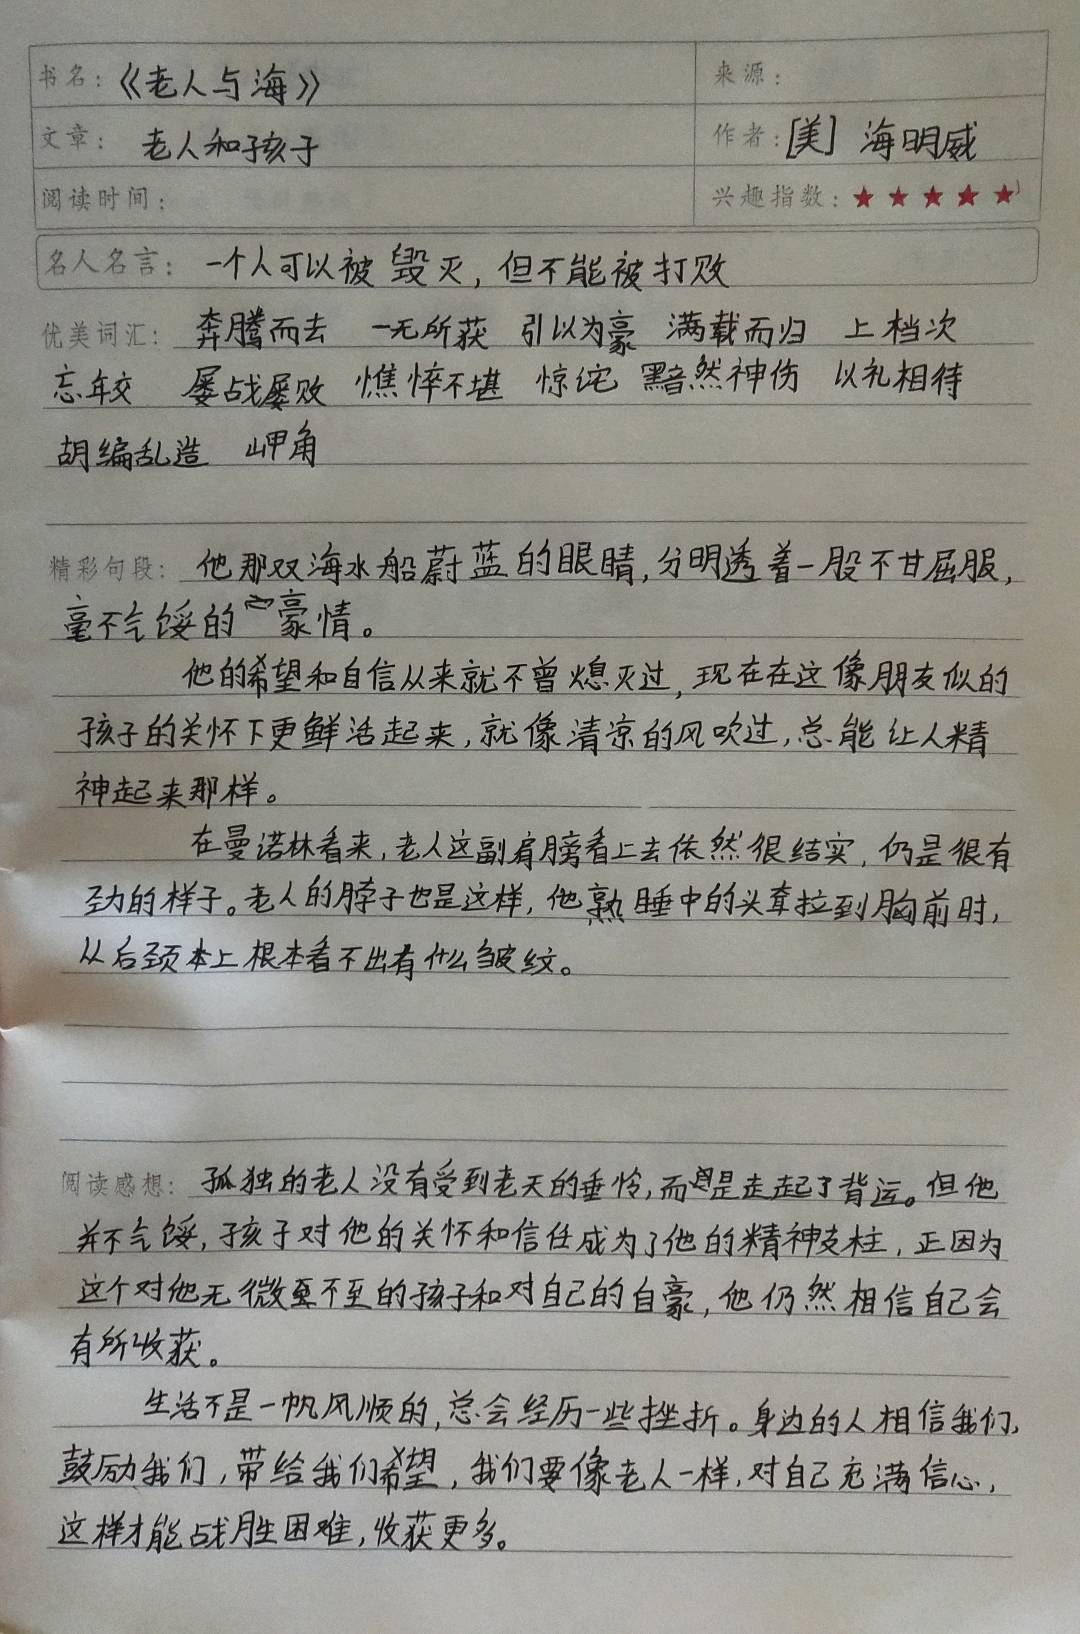 书名：《老人与海》 来源：
文章：老人和孩子 作者：[美] 海明威
阅读时间： 兴趣指数：★★★★★
名人名言：一个人可以被毁灭，但不能被打败
优美词汇：奔腾而去 一无所获 引以为豪 满载而归 上档次
忘较 屡战屡败 憔悴不堪 惊诧 黯然神伤 以礼相待
胡编乱造 岬角
精彩句段：他那双海水船蔚蓝的眼睛，分明透着一股不甘屈服，
毫不气馁的豪情。
他的希望和自信从来就不曾熄灭过，现在在这像朋友似的
孩子的关怀下更鲜活起来，就像清凉的风吹过，总能让人精
神起来那样。
在曼诺林看来，老人这副肩膀看上去依然很结实，仍是很有
劲的样子。老人的脖子也是这样，他熟睡中的头耷拉到胸前时，
从后颈本上根本看不出有什么皱纹。
阅读感想：孤独的老人没有受到老天的垂怜，而是走起了背运。但他
并不气馁，孩子对他的关怀和信任成为了他的精神支柱，正因为
这个对他无微至不至的孩子和对自己的自豪，他仍然相信自己会
有所收获。
生活不是一帆风顺的，总会经历一些挫折。身边的人相信我们，
鼓励我们，带给我们希望，我们要像老人一样，对自己充满信心，
这样才能战胜困难，收获更多。